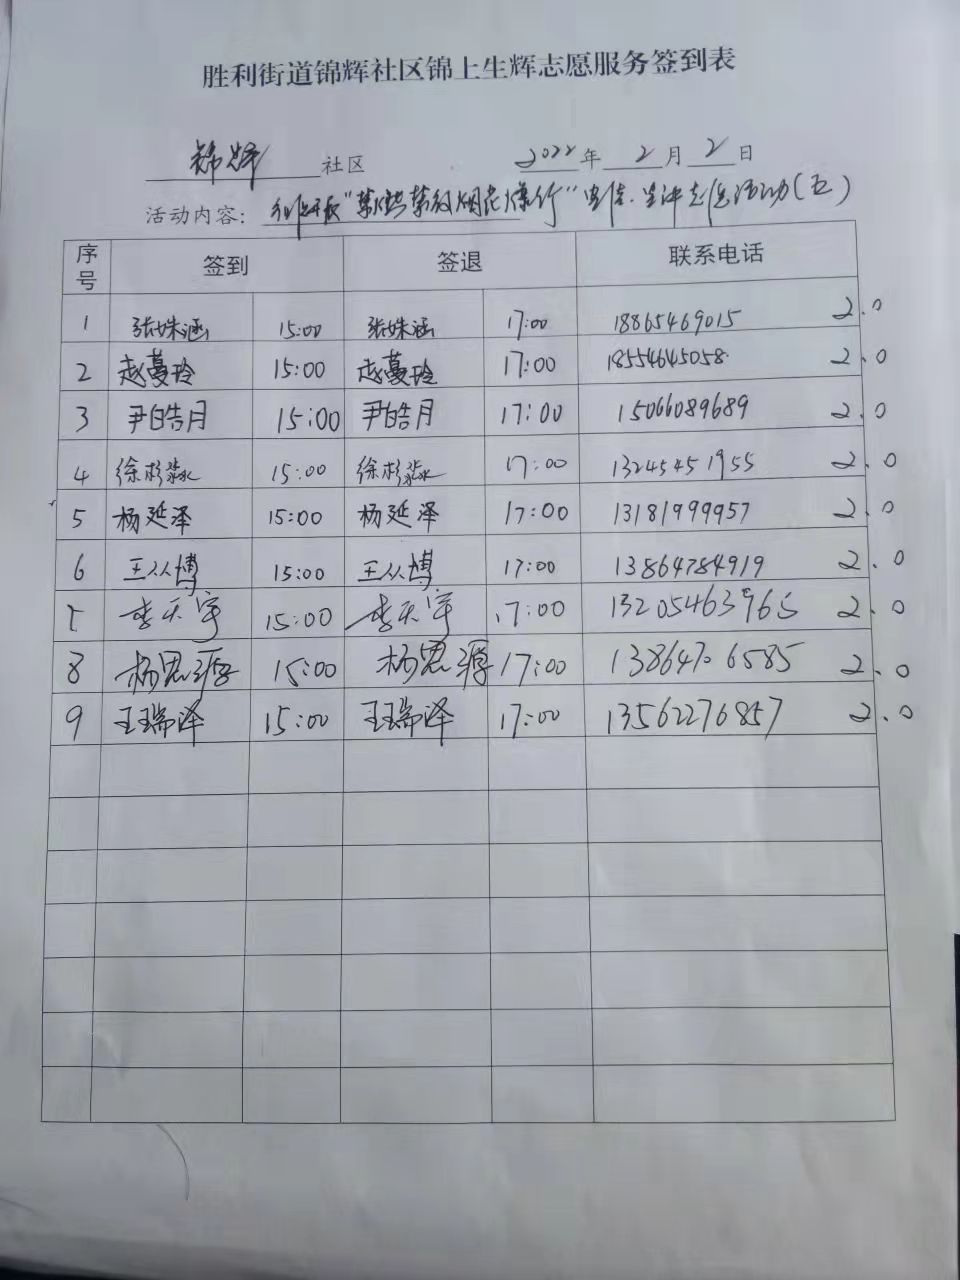 胜利街道锦辉社区锦上生辉志愿服务签到表
锦辉 社区 2022 年 2 月 2 日
活动内容: "禁燃禁放烟花爆竹" 志愿活动(五)
序号 签到 签退 联系电话
1 张姝涵 15:00 张姝涵 17:00 18865469015 2.0
2 赵蔓玲 15:00 赵蔓玲 17:00 18554645058 2.0
3 尹皓月 15:00 尹皓月 17:00 15066089689 2.0
4 徐杉淼 15:00 徐杉淼 17:00 13245451955 2.0
5 杨延泽 15:00 杨延泽 17:00 13181999957 2.0
6 王从博 15:00 王从博 17:00 13864784919 2.0
7 李天宇 15:00 李天宇 17:00 13205463965 2.0
8 杨思源 15:00 杨思源 17:00 13864706585 2.0
9 王瑞泽 15:00 王瑞泽 17:00 13562276857 2.0